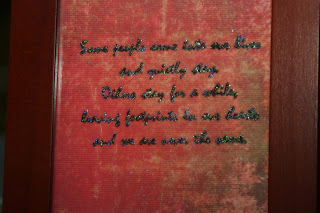 Some people come into our lives
and quietly stay.
Others stay for a while,
leaving footprints on our hearts
and we are never the same.